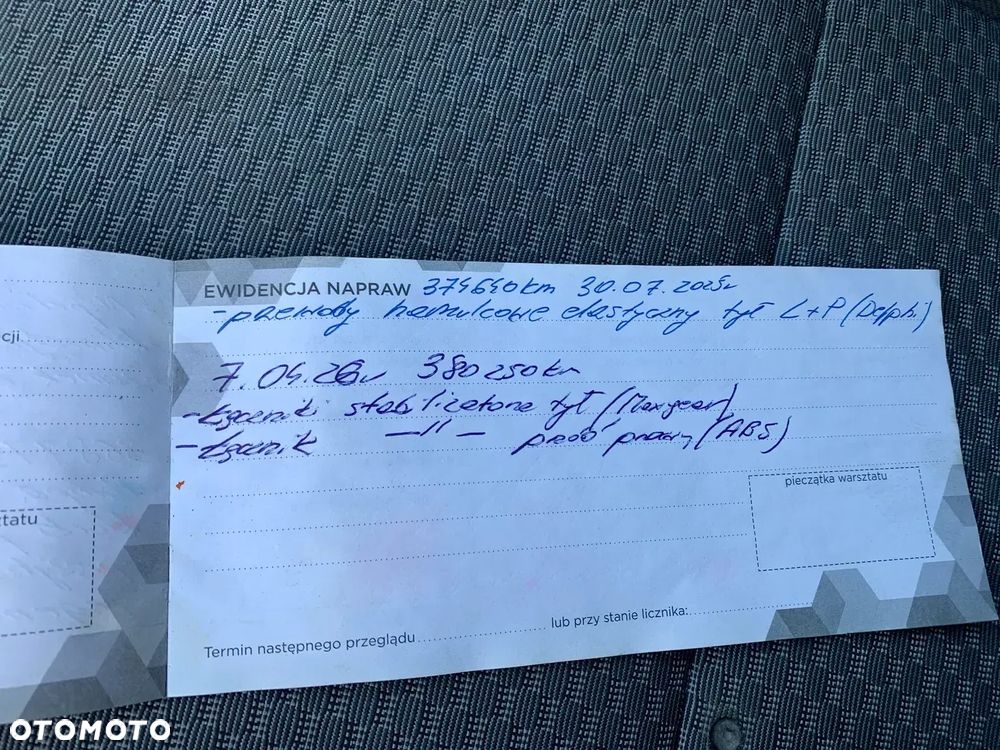 EWIDENCJA NAPRAW 374640km 30.07.2025r
- przewody hamulcowe elastyczny tył L+P (Delphi)
cji
7.04.26r 380250km
- Łączniki stabilizatora tył (Maxgear)
- Łącznik —||— przód prawy (ABS)
pieczątka warsztatu
ztatu
Termin następnego przeglądu
lub przy stanie licznika:
OTOMOTO